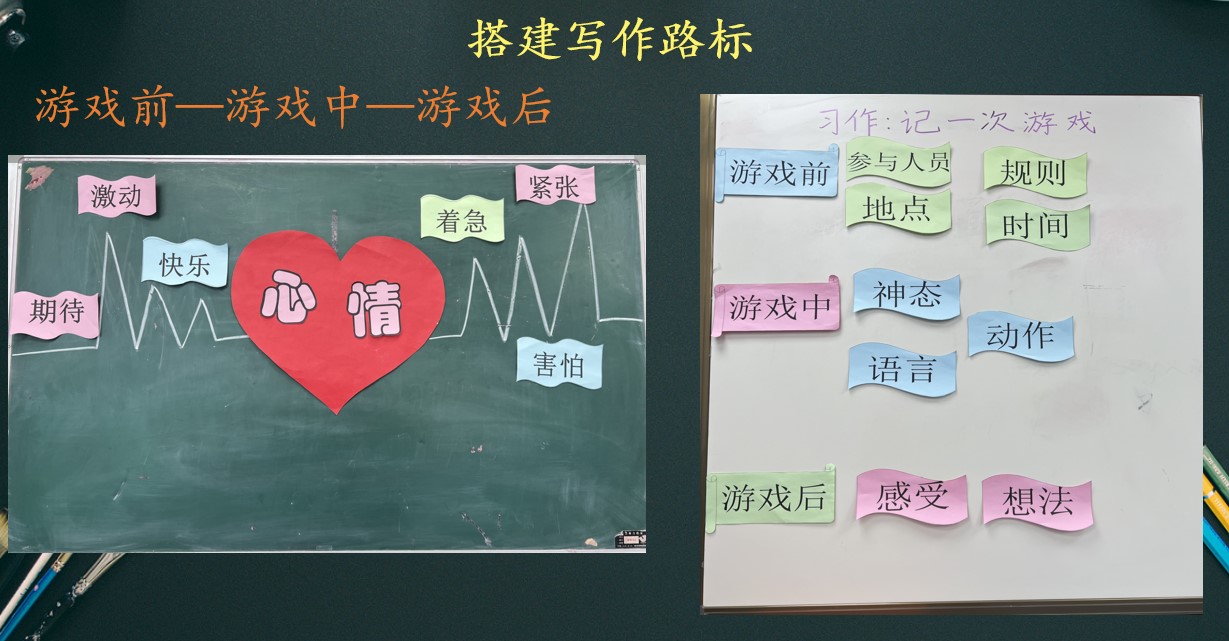 搭建写作路标
游戏前—游戏中—游戏后
激动
快乐
期待
心情
着急
紧张
害怕
习作:记一次游戏
游戏前
参与人员
规则
地点
时间
游戏中
神态
动作
语言
游戏后
感受
想法